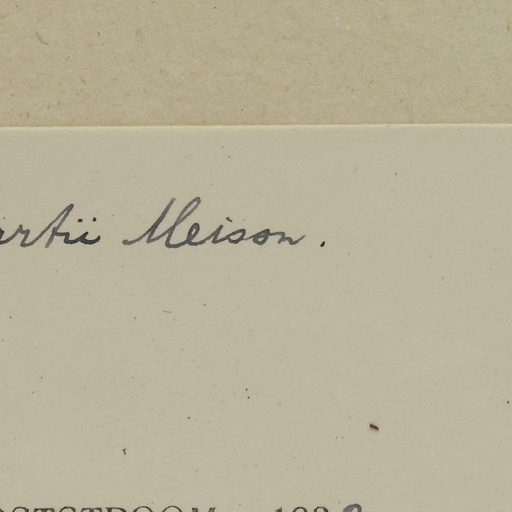 artii Meison.
OSTSTROOM 193